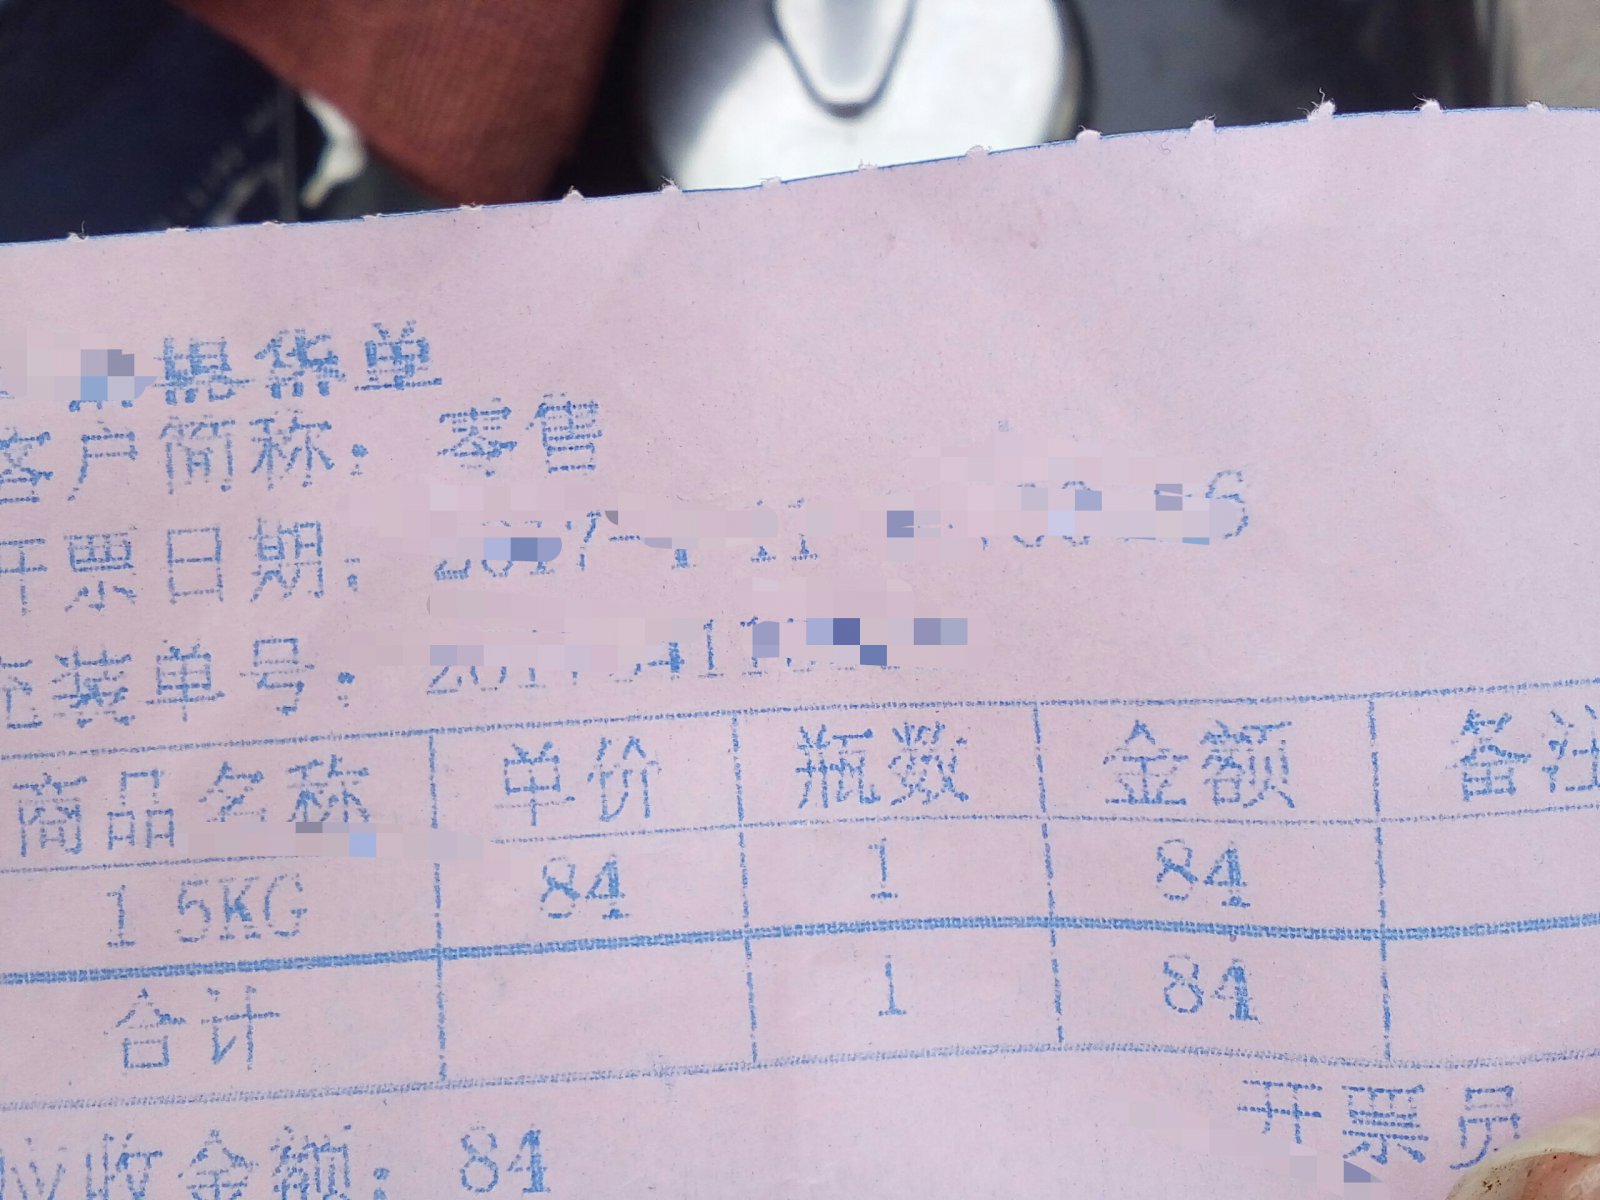 提货单
客户简称：零售
开票日期：
充装单号：
商品名称 单价 瓶数 金额 备注
15KG 84 1 84
合计 1 84
应收金额：84
开票员